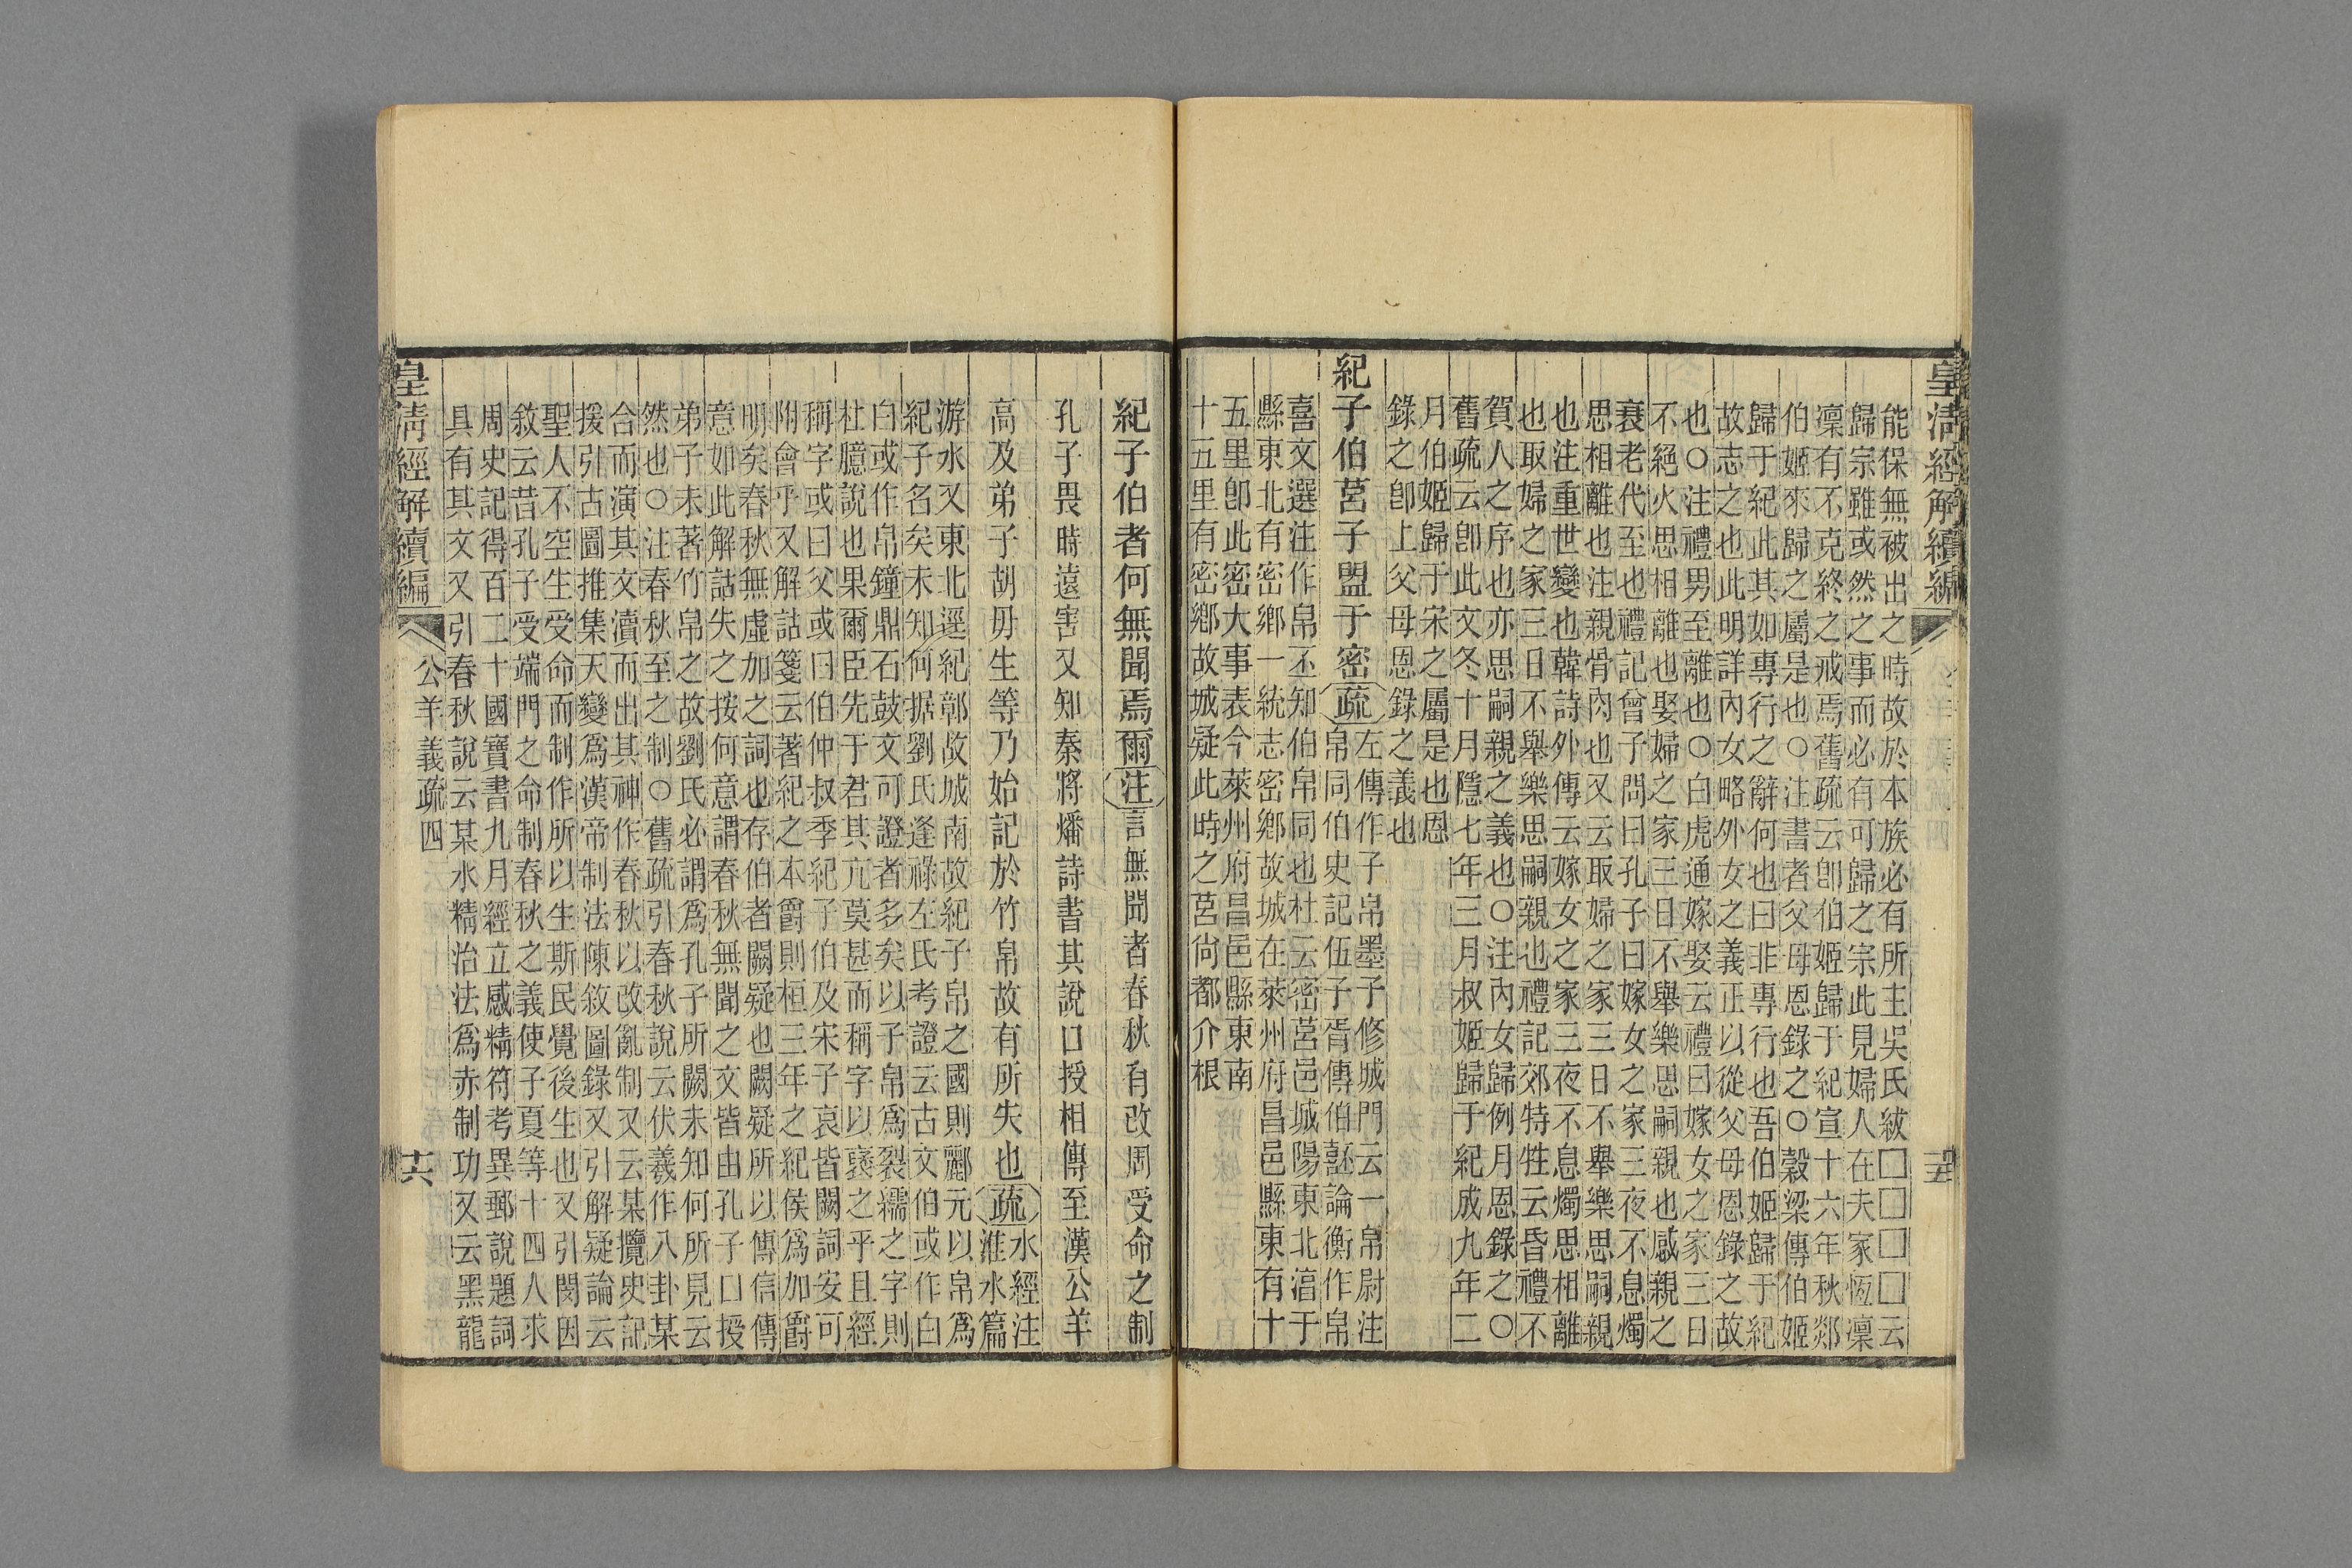 皇淸經解續編
能保無被出之時故於本族必有所主吳氏紱□□□□云
歸宗雖或然之事而必有可歸之宗此見婦人在夫家恆凜
凜有不克終之戒焉舊疏云卽伯姬歸于紀宣十六年秋郯
伯姬來歸之屬是也○注書者父母恩錄之○穀梁傳伯姬
歸于紀此其如專行之辭何也曰非專行也吾伯姬歸于紀
故志之也此明詳內女略外女之義正以從父母恩錄之故
也○注禮男至離也○白虎通嫁娶云禮曰嫁女之家三日
不絕火思相離也娶婦之家三日不舉樂思嗣親也感親之
衰老代至也禮記曾子問曰孔子曰嫁女之家三夜不息燭
思相離也注親骨肉也又云取婦之家三日不舉樂思嗣親
也注重世變也韓詩外傳云嫁女之家三夜不息燭思相離
也取婦之家三日不舉樂思嗣親也禮記郊特牲云昏禮不
賀人之序也亦思嗣親之義也○注內女歸例月恩錄之○
舊疏云卽此文冬十月隱七年三月叔姬歸于紀成九年二
月伯姬歸于宋之屬是也恩
錄之卽上父母恩錄之義也
紀子伯莒子盟于密
疏
左傳作子帛墨子修城門云一帛尉注
帛同伯史記伍子胥傳伯嚭論衡作帛
喜文選注作帛丕知伯帛同也杜云密莒邑城陽東北淳于
縣東北有密鄉一統志密鄉故城在萊州府昌邑縣東有十
五里卽此密大事表今萊州府昌邑縣東南
十五里有密鄉故城疑此時之莒尙都介根
紀子伯者何無聞焉爾
注
言無聞者春秋有改周受命之制
孔子畏時遠害又知秦將燔詩書其說口授相傳至漢公羊
高及弟子胡毋生等乃始記於竹帛故有所失也
疏
水經注
淮水篇
游水又東北逕紀鄣故城南故紀子帛之國則酈元以帛爲
紀子名矣未知何据劉氏逢祿左氏考證云古文伯或作白
白或作帛鐘鼎石鼓文可證者多矣以子帛爲裂繻之字則
杜臆說也果爾臣先于君其亢莫甚而稱字以褒之乎且經
稱字或曰父或曰伯仲叔季紀子伯及宋子哀皆闕詞安可
附會乎又解詁箋云著紀之本爵則桓三年之紀侯爲加爵
明矣春秋無虛加之詞也存伯者闕疑也闕疑所以傳信傳
意如此解詁失之按何意謂春秋無聞之文皆由孔子口授
弟子未著竹帛之故劉氏必謂爲孔子所闕未知何所見云
然也○注春秋至之制○舊疏引春秋說云伏羲作八卦某
合而演其文瀆而出其神作春秋以改亂制又云某攬史記
援引古圖推集天變爲漢帝制法陳敘圖錄又引解疑論云
聖人不空生受命而制作所以生斯民覺後生也又引閔因
敘云昔孔子受端門之命制春秋之義使子夏等十四人求
周史記得百二十國寶書九月經立感精符考異郵說題詞
具有其文又引春秋說云某水精治法爲赤制功又云黑龍
皇淸經解續編
公羊義疏四
十六